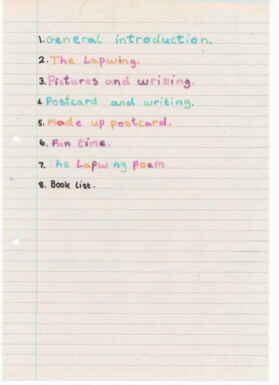 1. General introduction.
2. The Lapwing.
3. Pictures and writing.
4. Postcard and writing.
5. Made up postcard.
6. Fun time.
7. The Lapwing Poem
8. Book List.